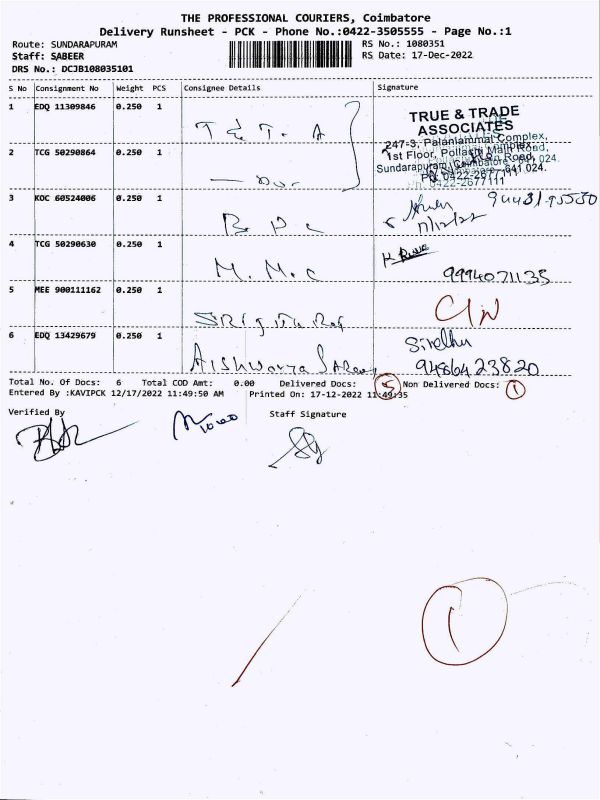 THE PROFESSIONAL COURIERS, Coimbatore
Delivery Runsheet - PCK - Phone No.:0422-3505555 - Page No.:1
Route: SUNDARAPURAM
RS No.: 1080351
Staff: SABEER
RS Date: 17-Dec-2022
DRS No.: DCJB108035101
S No Consignment No Weight PCS Consignee Details Signature
1 EDQ 11309846 0.250 1
T & T - A
TRUE & TRADE
ASSOCIATES
247-3, Palaniammal Complex,
1st Floor, Pollachi Main Road,
Sundarapuram, Coimbatore - 641 024.
Ph: 0422-2677111
2 TCG 50290864 0.250 1
3 KOC 60524006 0.250 1
B P C
17/12/22
4 TCG 50290630 0.250 1
M. M. C
9994071135
5 MEE 900111162 0.250 1
6 EDQ 13429679 0.250 1
Aishwarya
Sindhu
9486423820
Total No. Of Docs: 6 Total COD Amt: 0.00 Delivered Docs: 5 Non Delivered Docs: 1
Entered By :KAVIPCK 12/17/2022 11:49:50 AM Printed On: 17-12-2022 11:49:35
Verified By
Staff Signature
1